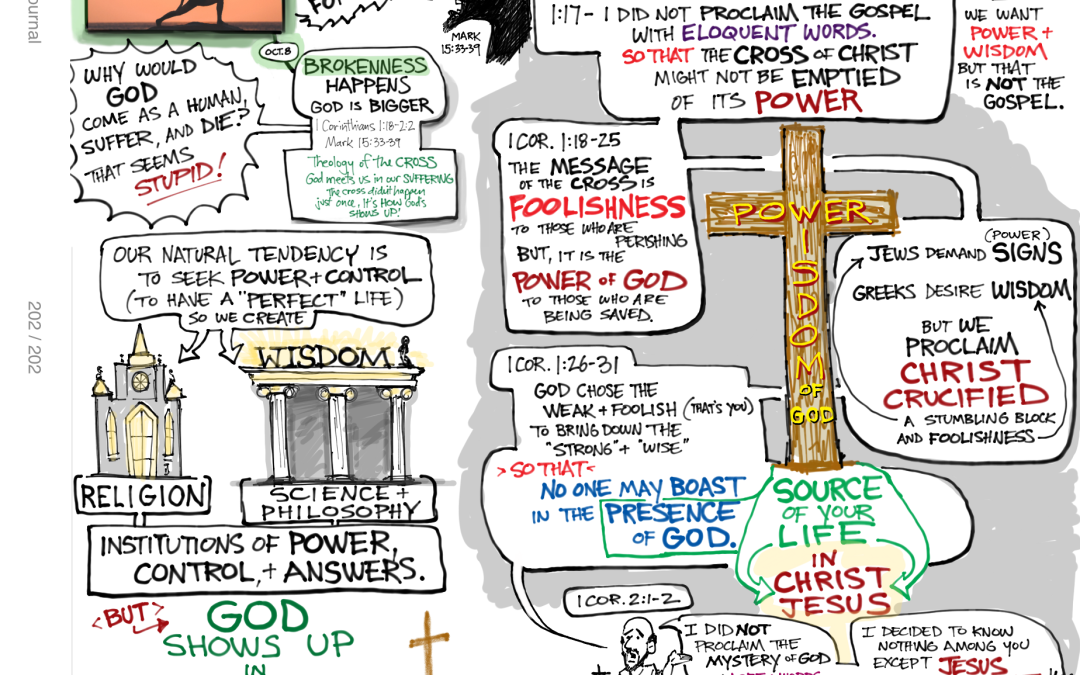 Journal
202 / 202
MARK
15:33-39
WHY WOULD
GOD
COME AS A HUMAN,
SUFFER, AND DIE?
THAT SEEMS
STUPID!
OCT. 8
BROKENNESS
HAPPENS
GOD IS BIGGER
1 Corinthians 1:18-2:2
Mark 15:33-39
Theology of the CROSS
God meets us in our SUFFERING
The cross didn't happen
just once, It's HOW God's
SHOWS UP!
OUR NATURAL TENDENCY IS
TO SEEK POWER + CONTROL
(TO HAVE A "PERFECT" LIFE)
SO WE CREATE
WISDOM
RELIGION
SCIENCE +
PHILOSOPHY
INSTITUTIONS OF POWER,
CONTROL, + ANSWERS.
<BUT>
GOD
SHOWS UP
IN
1:17- I DID NOT PROCLAIM THE GOSPEL
WITH ELOQUENT WORDS.
SO THAT THE CROSS OF CHRIST
MIGHT NOT BE EMPTIED
OF ITS POWER
WE WANT
POWER +
WISDOM
BUT THAT
IS NOT THE
GOSPEL.
1 COR. 1:18-25
THE MESSAGE
OF THE CROSS IS
FOOLISHNESS
TO THOSE WHO ARE
PERISHING
BUT, IT IS THE
POWER OF GOD
TO THOSE WHO ARE
BEING SAVED.
POWER
WISDOM
OF
GOD
(POWER)
JEWS DEMAND SIGNS
GREEKS DESIRE WISDOM
BUT WE
PROCLAIM
CHRIST
CRUCIFIED
A STUMBLING BLOCK
AND FOOLISHNESS
1 COR. 1:26-31
GOD CHOSE THE
WEAK + FOOLISH (THAT'S YOU)
TO BRING DOWN THE
"STRONG" + "WISE"
>SO THAT<
NO ONE MAY BOAST
IN THE PRESENCE
OF GOD.
SOURCE
OF YOUR
LIFE
IN
CHRIST
JESUS
1 COR. 2:1-2
I DID NOT
PROCLAIM THE
MYSTERY OF GOD
I DECIDED TO KNOW
NOTHING AMONG YOU
EXCEPT JESUS